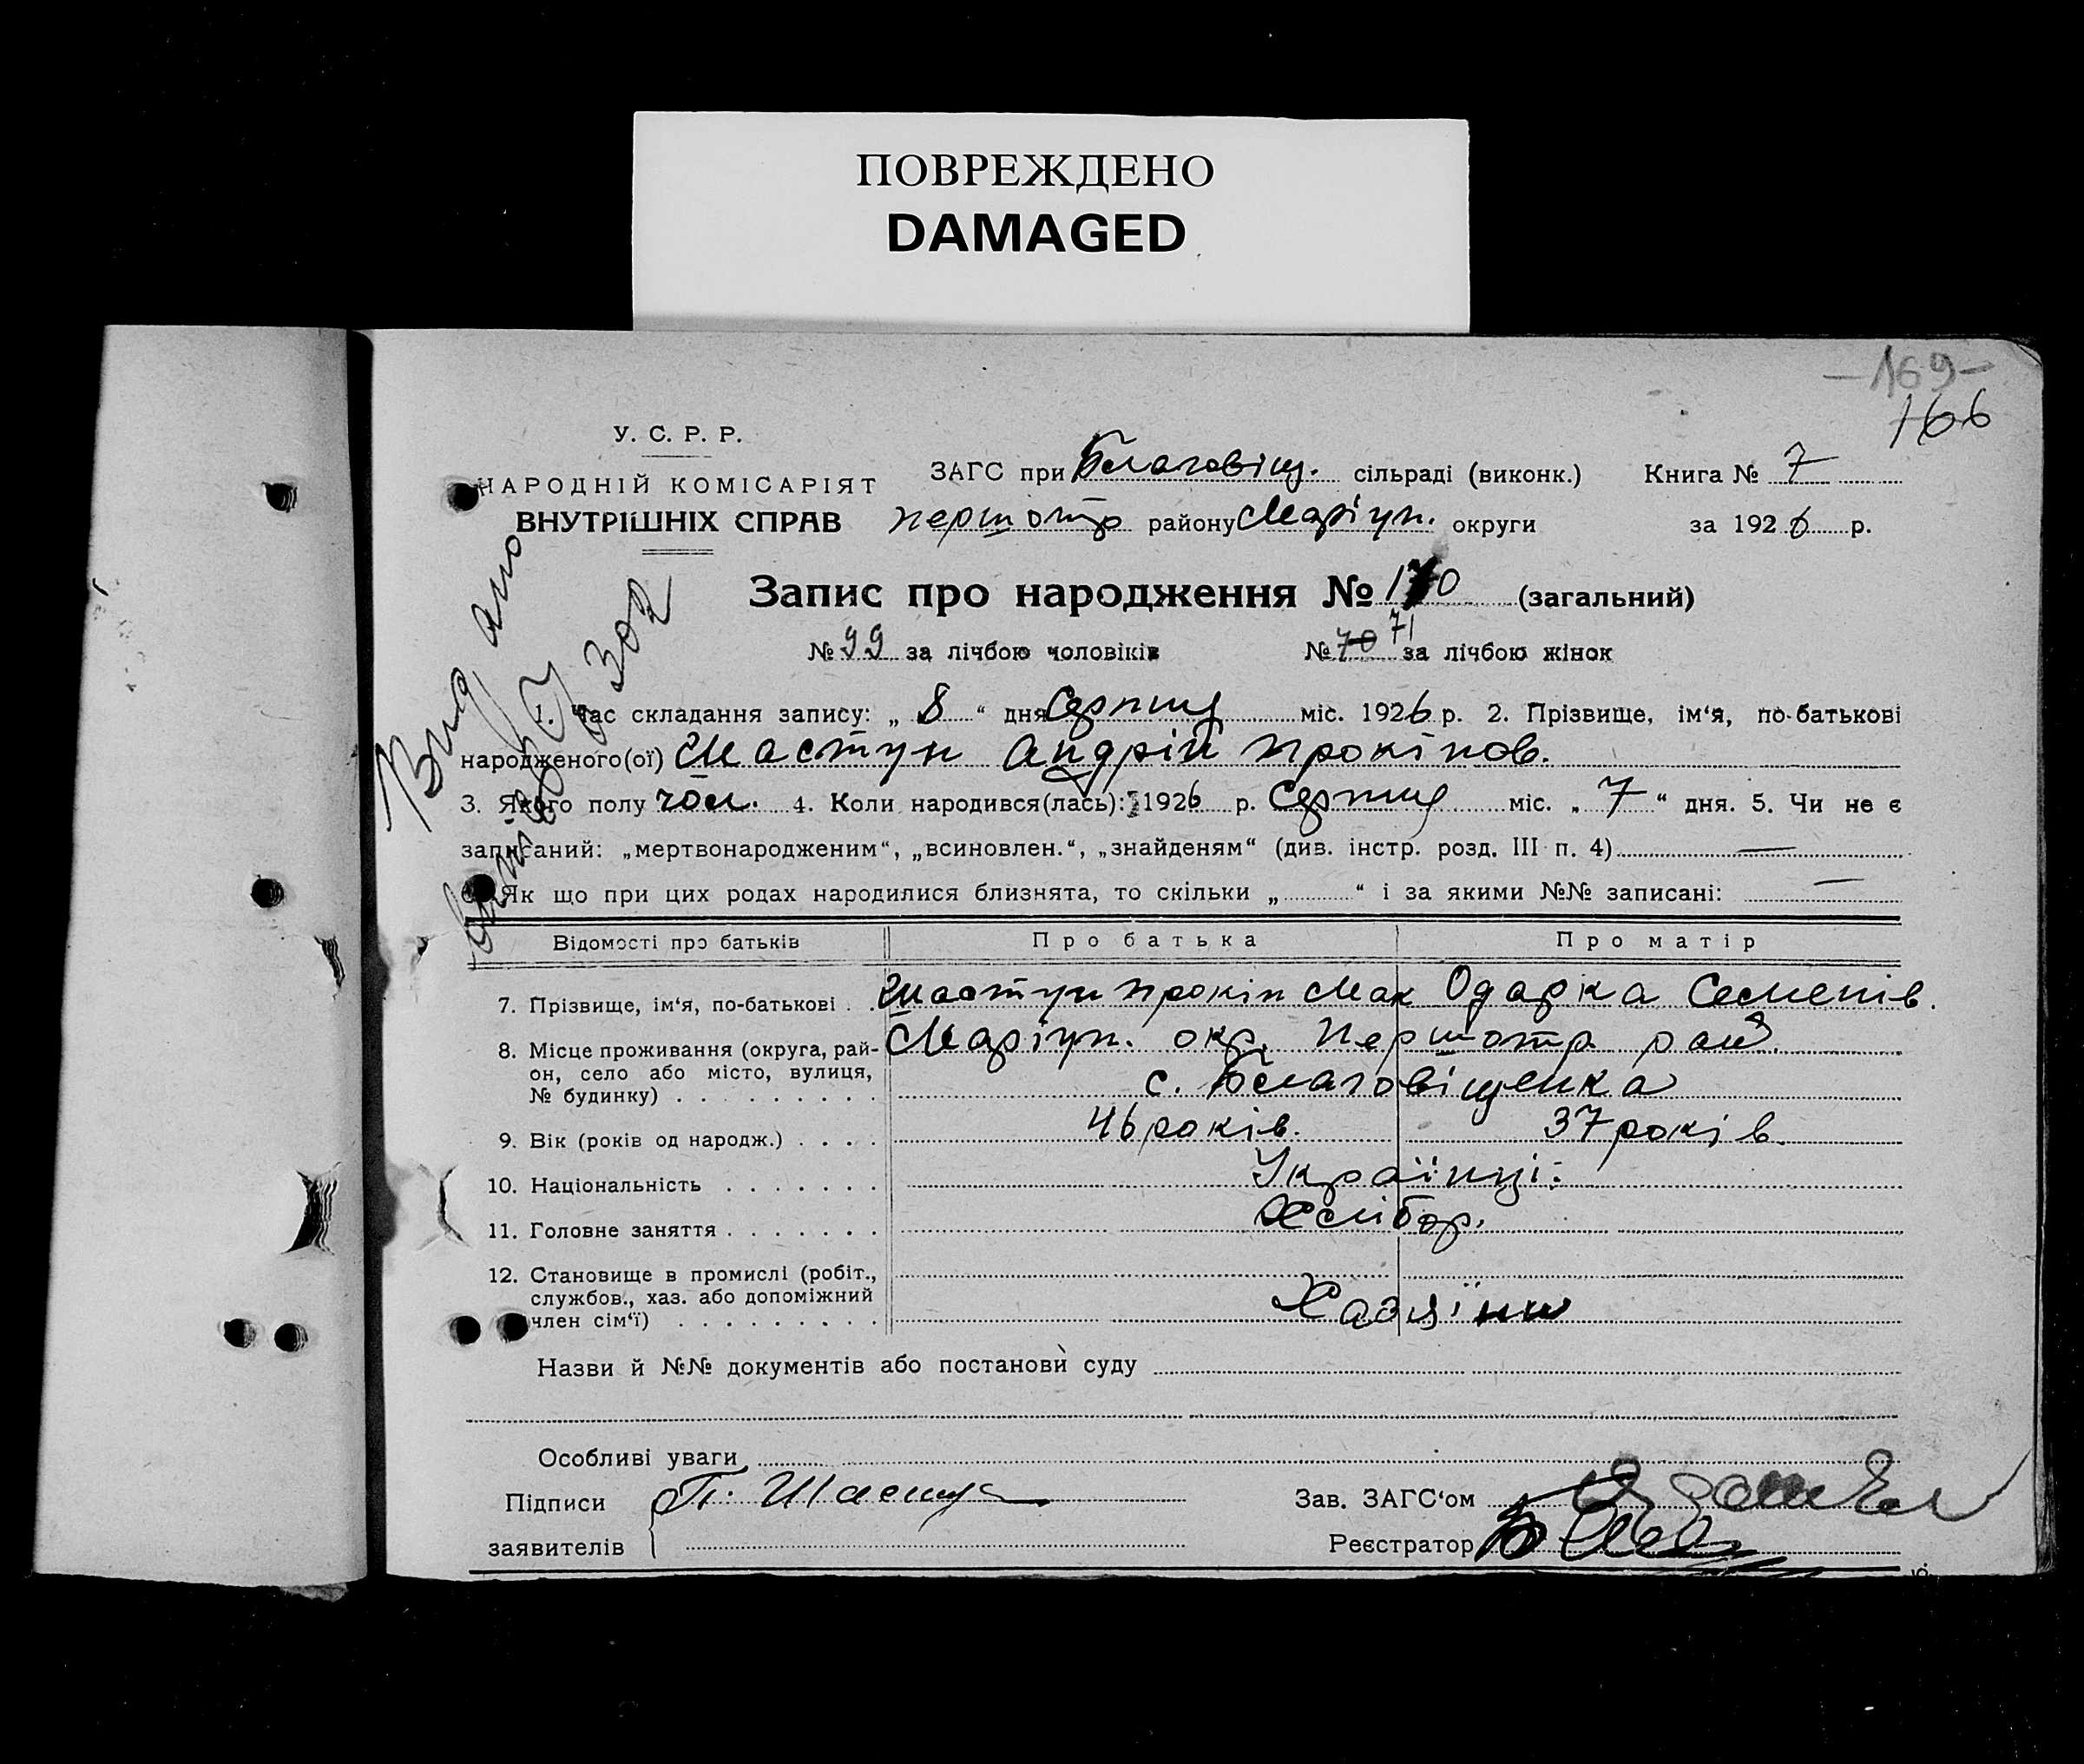 ПОВРЕЖДЕНО
DAMAGED
-169-
166
У. С. Р. Р.
НАРОДНІЙ КОМІСАРІЯТ
ВНУТРІШНІХ СПРАВ
ЗАГС при Благовіщ. сільраді (виконк.) Книга № 7
першотр району Маріуп. округи за 1926 р.
Видано
Запис про народження № 170 (загальний)
№ 99 за лічбою чоловіків № 70 71 за лічбою жінок
1. Час складання запису: „ 8 “ дня Серпня міс. 1926 р. 2. Прізвище, ім‘я, по-батькові
народженого(ої) Шастун Андрій Прокіпов.
3. Якого полу чол. 4. Коли народився(лась): 1926 р. Серпня міс. „ 7 “ дня. 5. Чи не є
записаний: „мертвонародженим“, „всиновлен.“, „знайденям“ (див. інстр. розд. III п. 4) —
6. Як що при цих родах народилися близнята, то скільки „ “ і за якими №№ записані: —
Відомості про батьків Про батька Про матір
7. Прізвище, ім‘я, по-батькові . . Шастун Прокіп Мак Одарка Семенів.
8. Місце проживання (округа, рай- Маріуп. окр. Першотр рай.
он, село або місто, вулиця, с. Благовіщенка
№ будинку) . . . . . . . . .
9. Вік (років од народж.) . . . . 46 років. 37 років.
10. Національність . . . . . . . Українці.
11. Головне заняття . . . . . . . Хлібор.
12. Становище в промислі (робіт.,
службов., хаз. або допоміжний Хазяїни
член сім‘ї) . . . . . . . . .
Назви й №№ документів або постанови суду
Особливі уваги
Підписи П. Шастун Зав. ЗАГС‘ом
заявителів Реєстратор